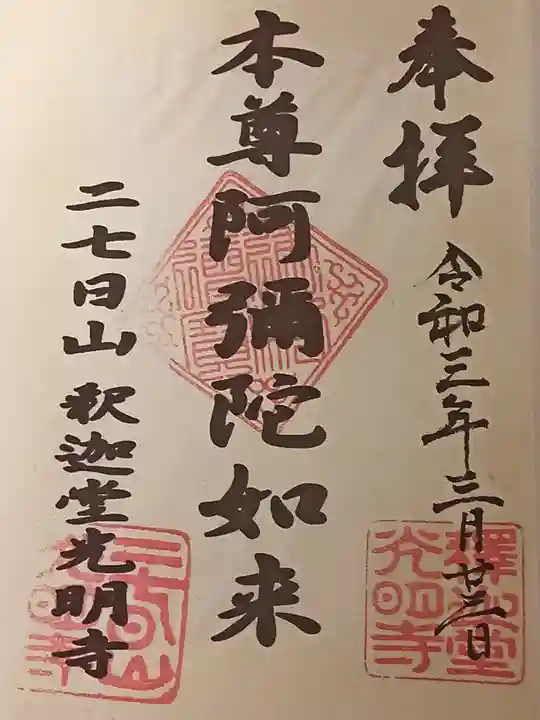 奉拝
令和三年三月廿三日
本尊阿彌陀如来
二七日山 釈迦堂光明寺
釋迦堂
光明寺